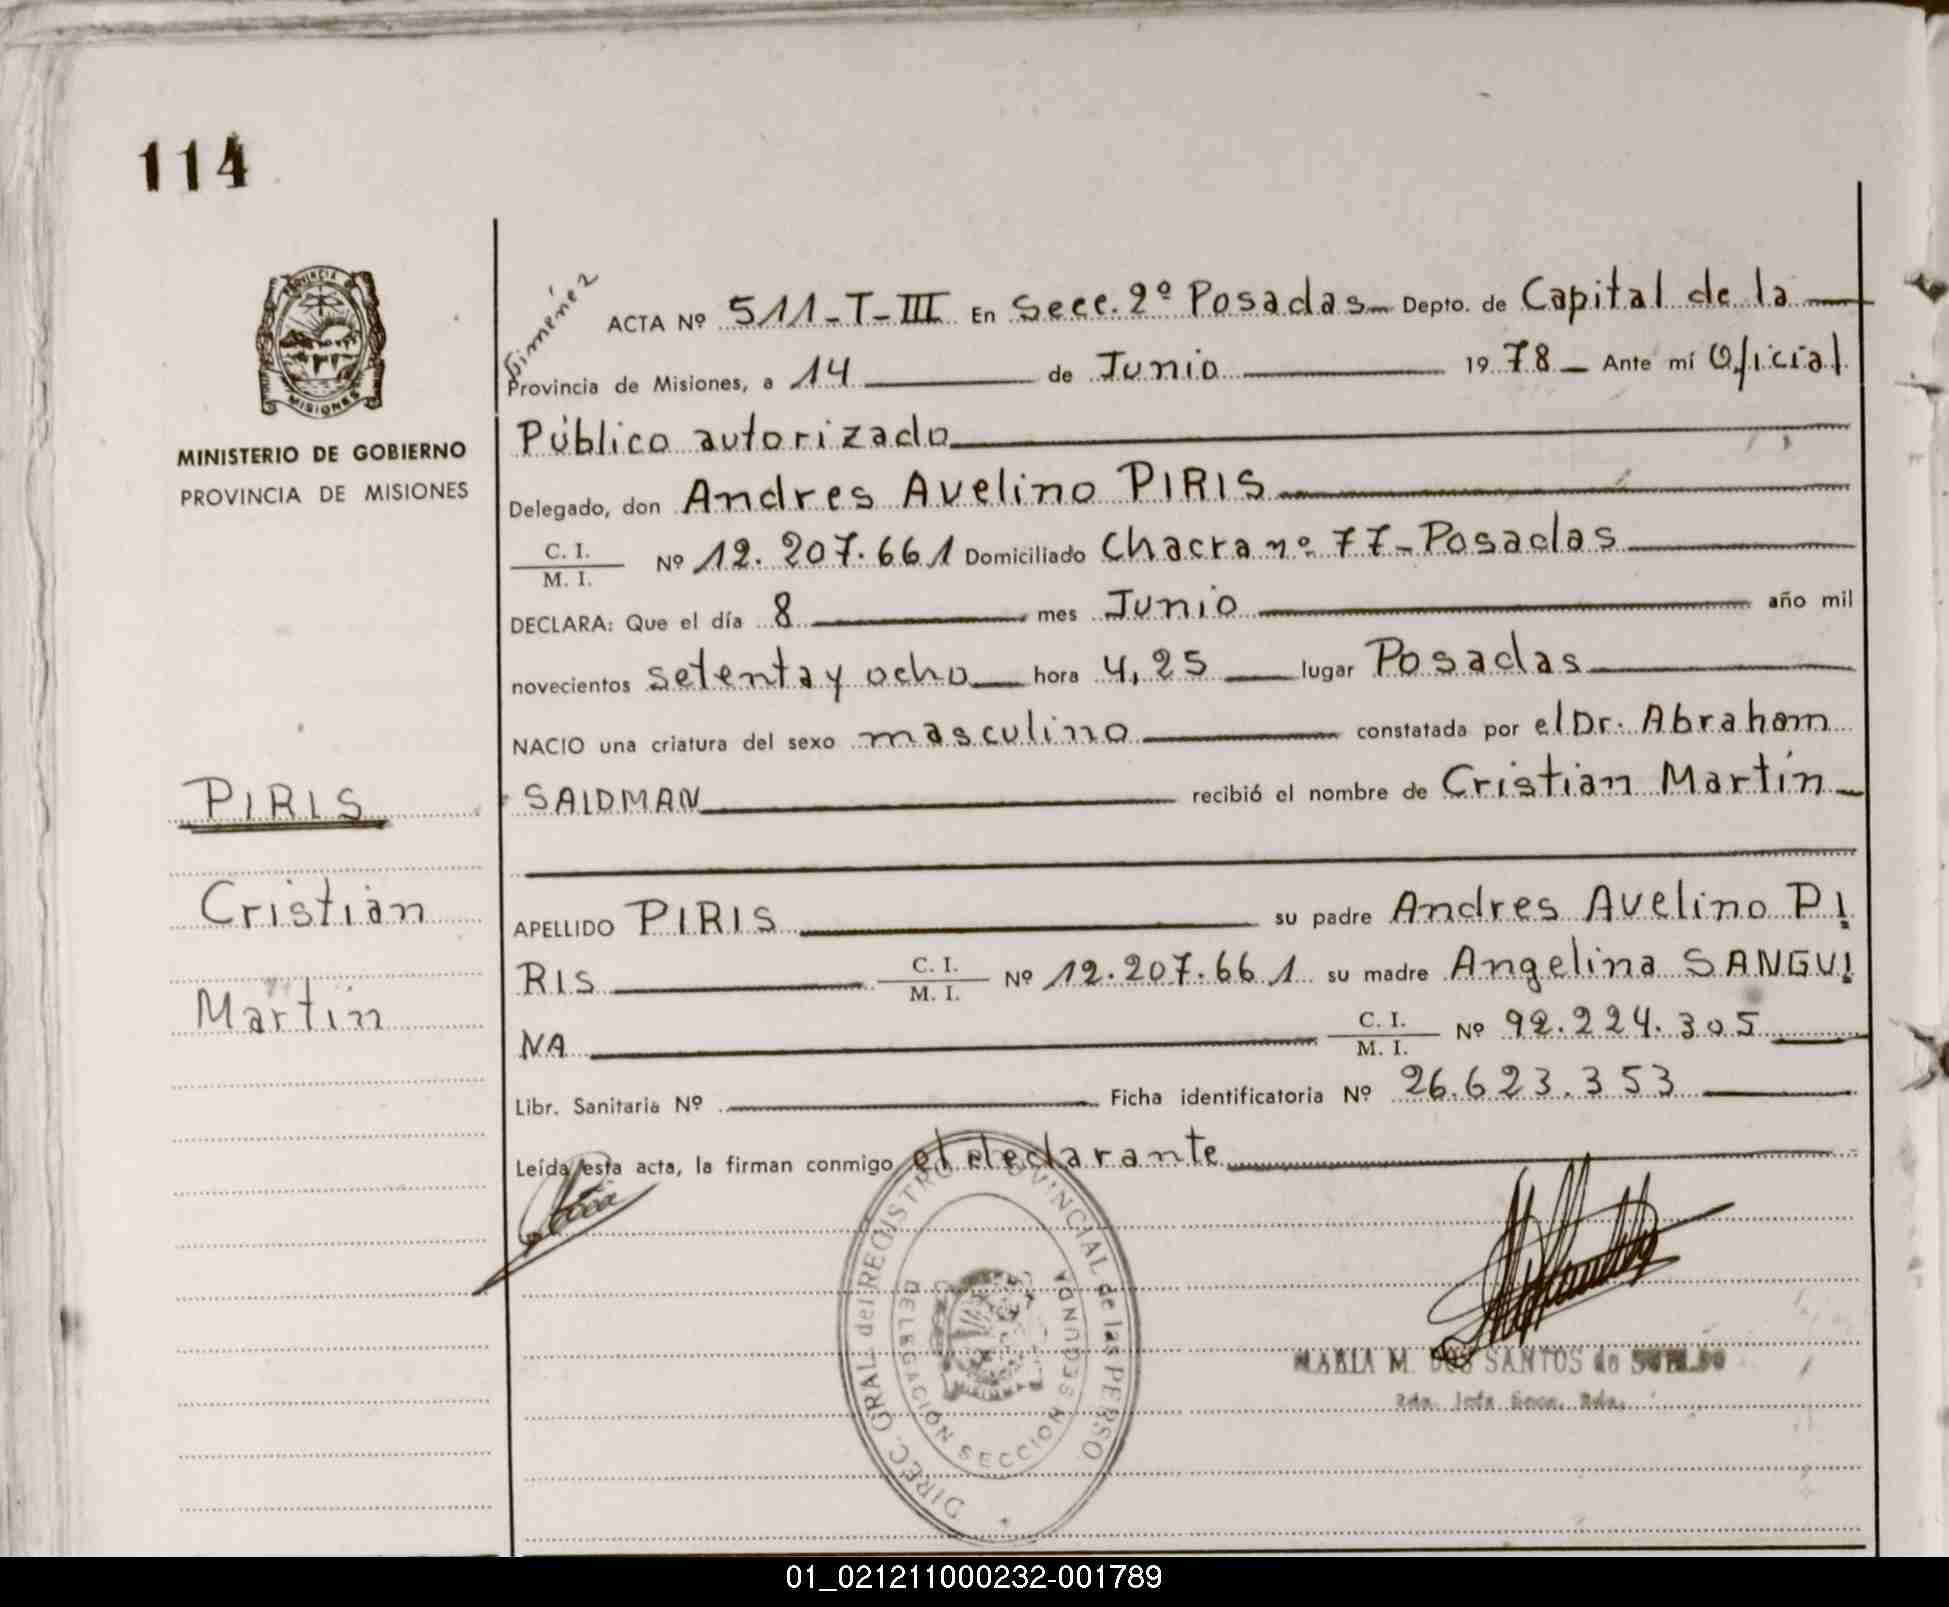 114
PROVINCIA
MISIONES
MINISTERIO DE GOBIERNO
PROVINCIA DE MISIONES
PIRIS
Cristian
Martin
Giménez
ACTA Nº 511-T-III En Secc. 2º Posadas Depto. de Capital de la
Provincia de Misiones, a 14 de Junio 1978 Ante mí Oficial
Público autorizado
Delegado, don Andres Avelino PIRIS
C. I.
M. I. Nº 12.207.661 Domiciliado Chacra nº 77-Posadas
DECLARA: Que el día 8 mes Junio año mil
novecientos setenta y ocho hora 4,25 lugar Posadas
NACIO una criatura del sexo masculino constatada por el Dr. Abraham
SAIDMAN recibió el nombre de Cristian Martín
APELLIDO PIRIS su padre Andres Avelino PI
RIS C. I.
M. I. Nº 12.207.661 su madre Angelina SANGUI
NA C. I.
M. I. Nº 92.224.305
Libr. Sanitaria Nº Ficha identificatoria Nº 26.623.353
Leída esta acta, la firman conmigo el declarante
DIREC. GRAL. del REGISTRO PROVINCIAL de las PERSO.
DELEGACIÓN SECCION SEGUNDA
MARIA M. DOS SANTOS de
01_021211000232-001789